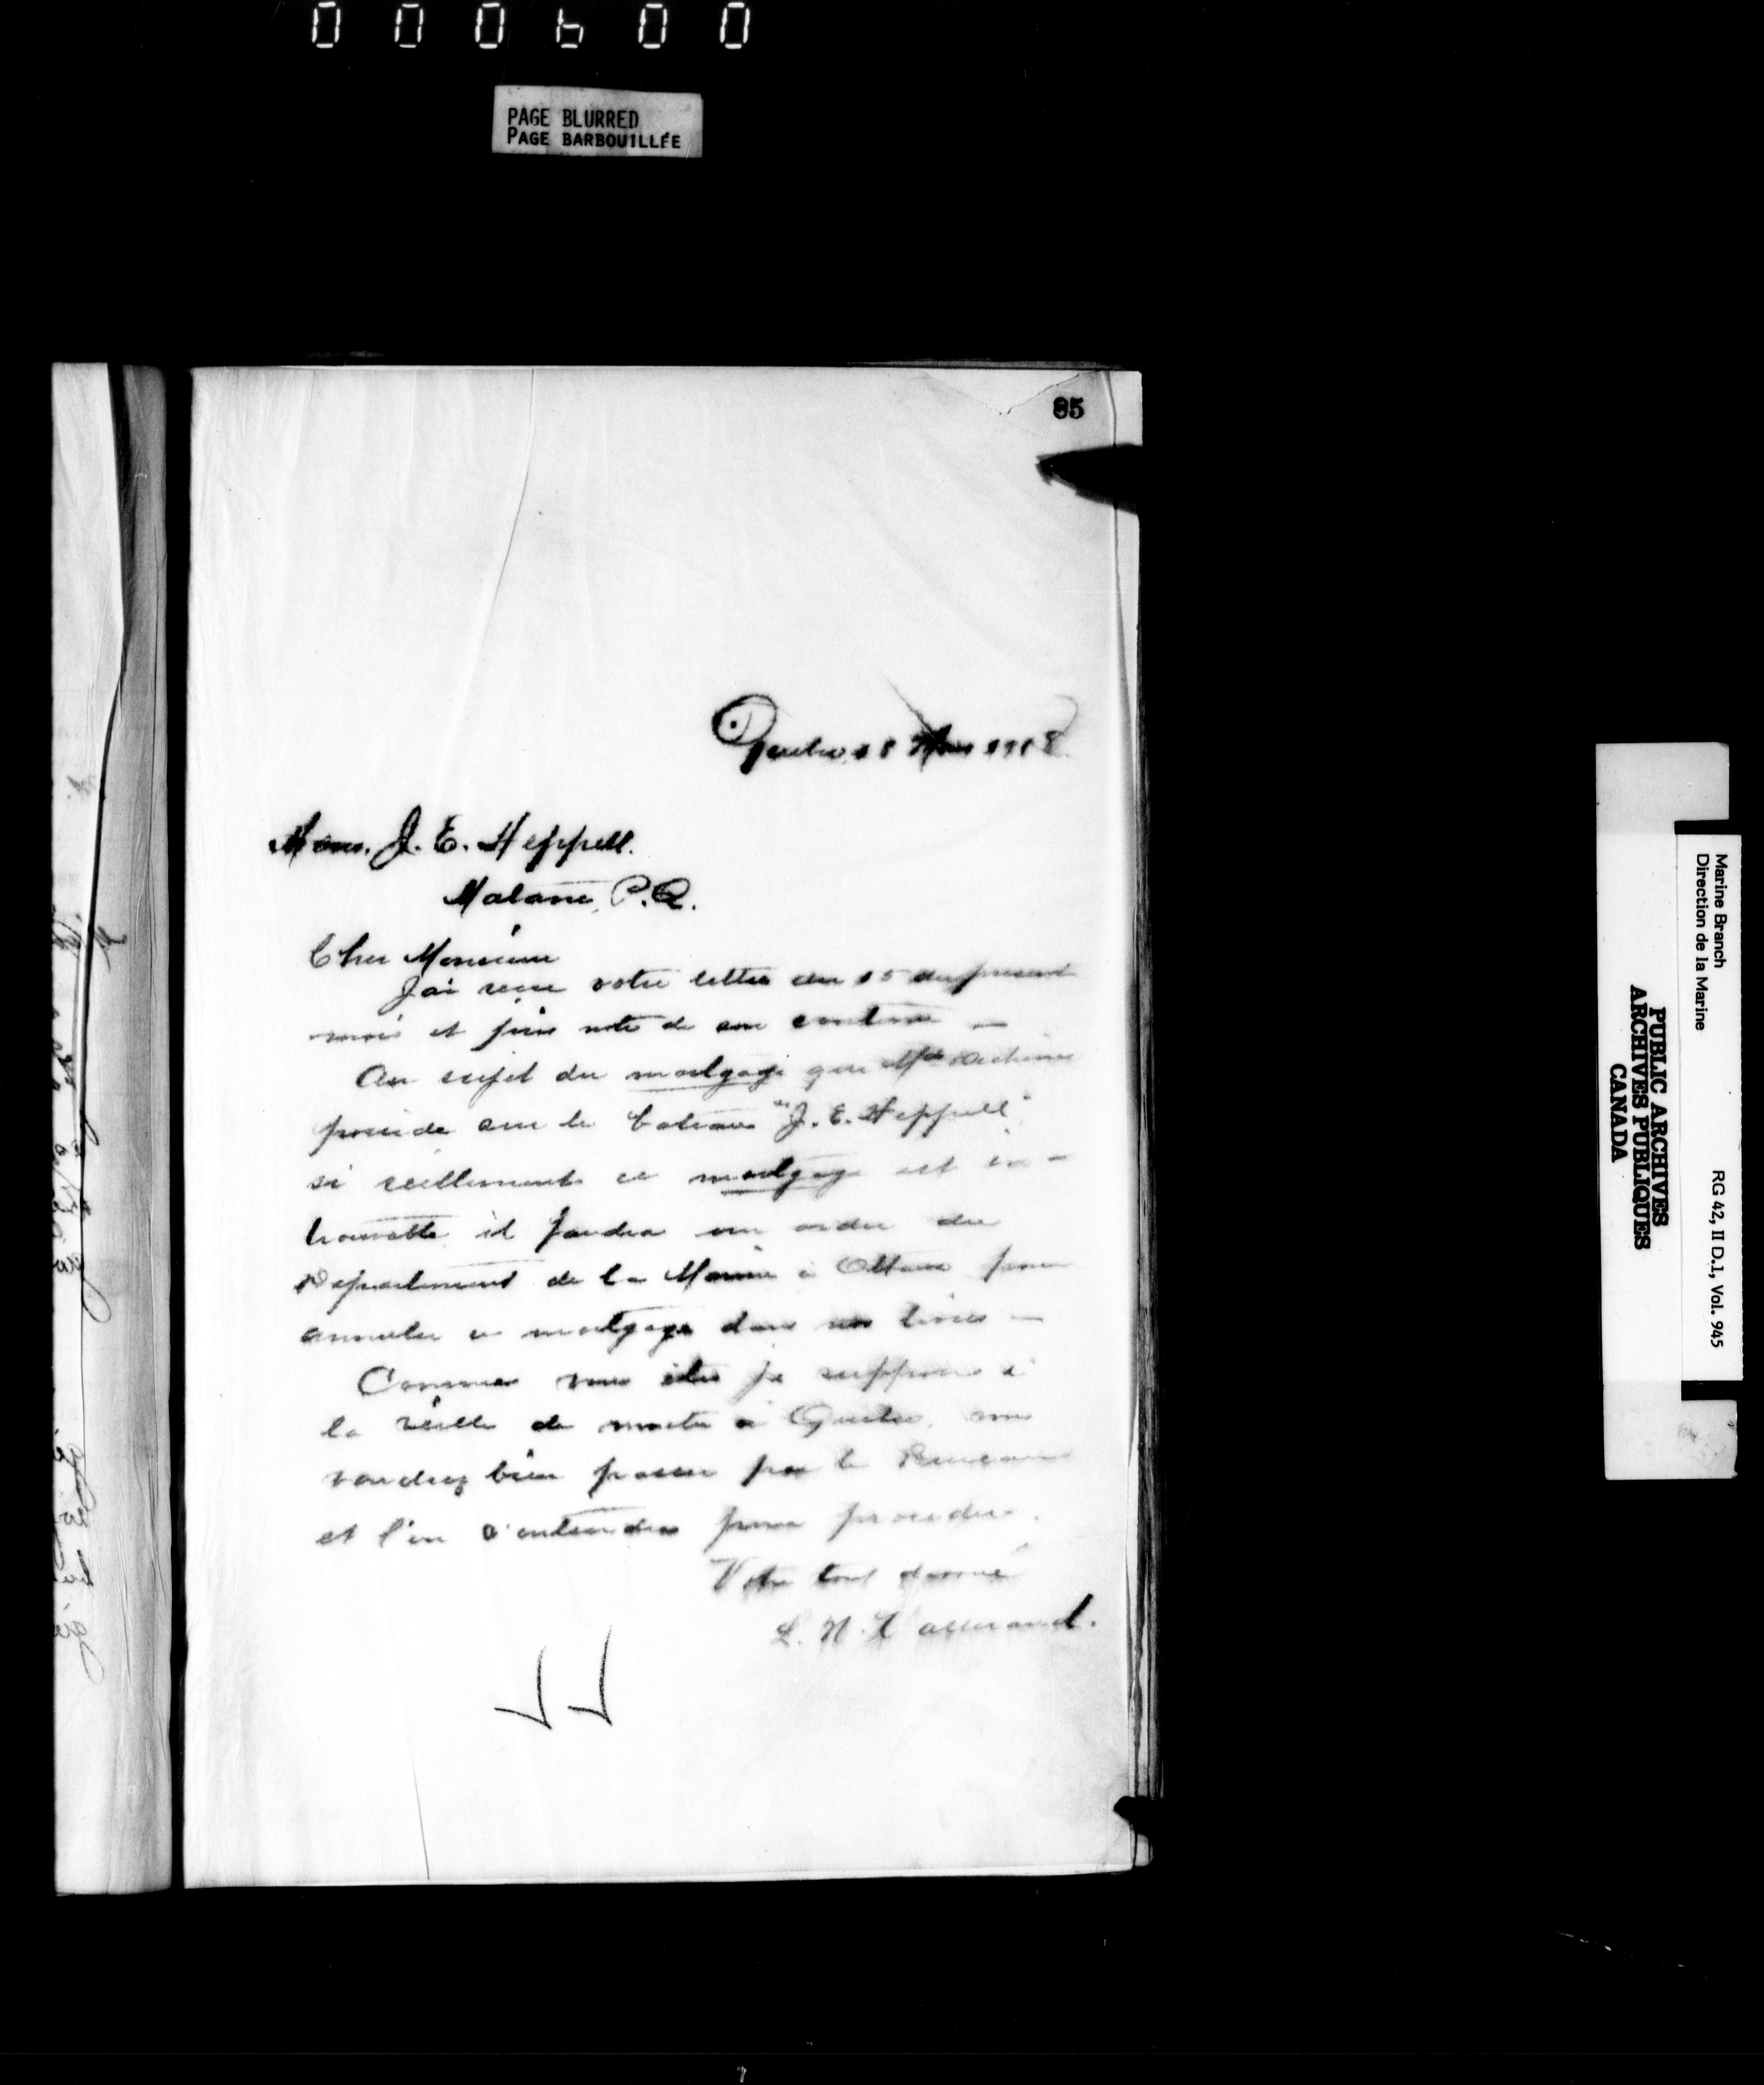 PAGE BLURRED
PAGE BARBOUILLÉE
85
Quebec 18 Mars
Mons. J. E. Heppell.
Matane, P.Q.
Cher Monsieur
J'ai recu votre lettre du 15 du present
mois et pris note de son contenu —
Au sujet du mortgage que
possède sur le bateau "J. E. Heppell"
si réellement ce mortgage est in-
trouvable il faudra un order du
Departement de la Marine à Ottawa pour
annuler ce mortgage dans nos livres —
Comme vous êtes je suppose à
la veille de monter à Quebec, vous
voudrez bien passer par le Bureau
et l'on s'entendra pour proceder.
Votre tout devoué
Marine Branch
Direction de la Marine
RG 42, II D.1, Vol. 945
PUBLIC ARCHIVES
ARCHIVES PUBLIQUES
CANADA